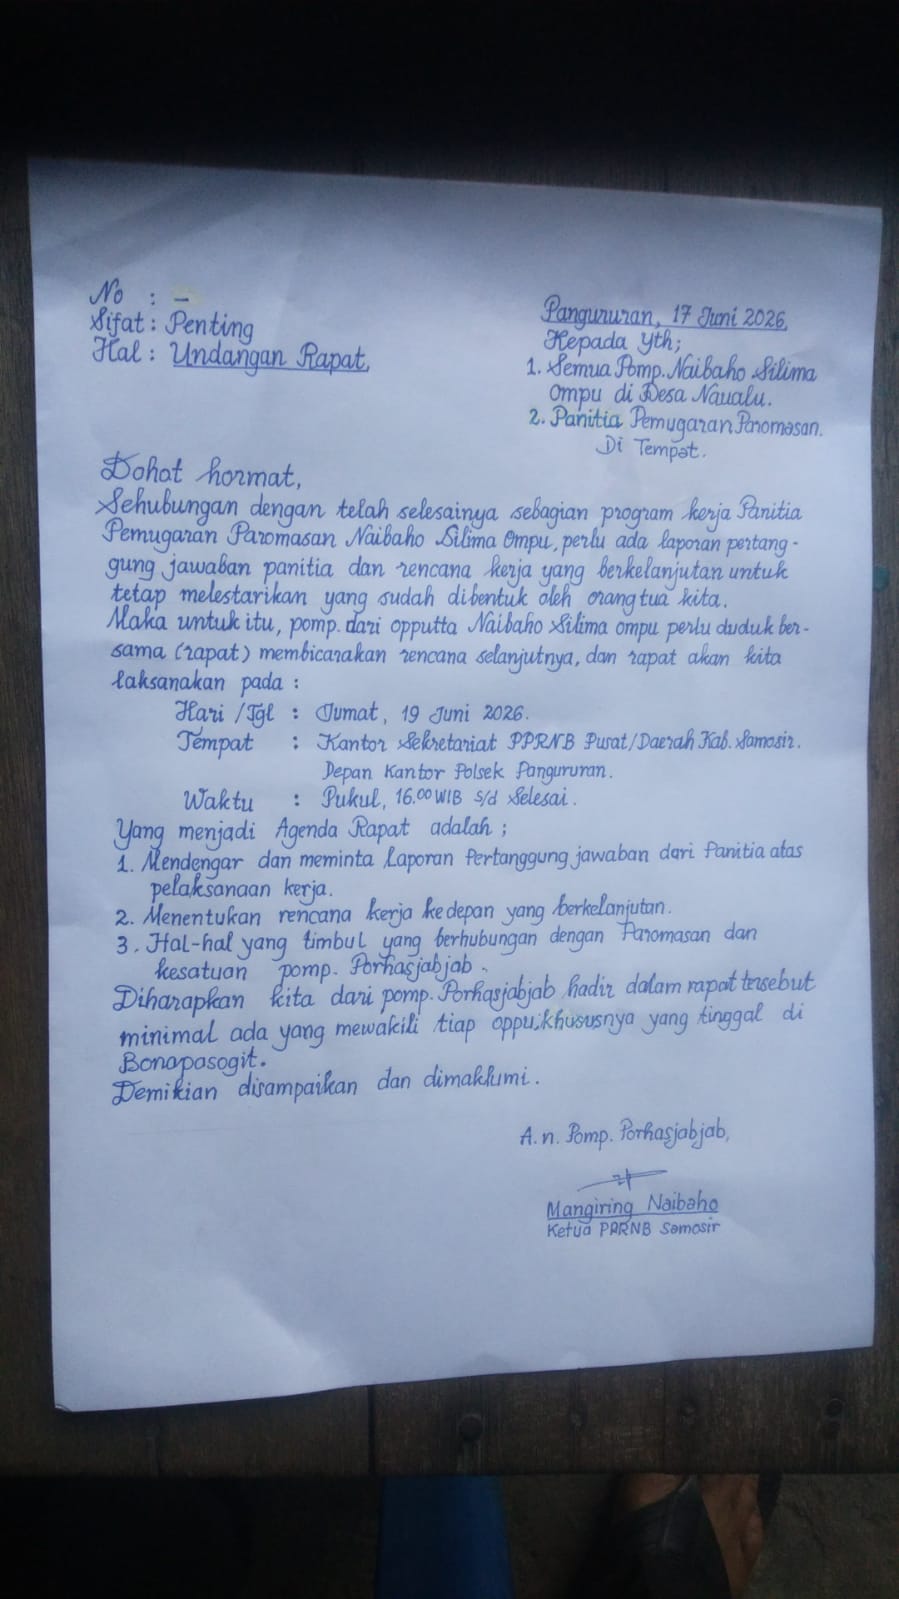 No : -
Sifat : Penting
Hal : Undangan Rapat,
Pangururan, 17 Juni 2026,
Kepada Yth;
1. Semua Pomp. Naibaho Silima
Ompu di Desa Naualu.
2. Panitia Pemugaran Paromasan.
Di Tempat.
Dohot hormat,
Sehubungan dengan telah selesainya sebagian program kerja Panitia
Pemugaran Paromasan Naibaho Silima Ompu, perlu ada laporan pertang-
gung jawaban panitia dan rencana kerja yang berkelanjutan untuk
tetap melestarikan yang sudah dibentuk oleh orangtua kita.
Maka untuk itu, pomp. dari opputta Naibaho Silima ompu perlu duduk ber-
sama (rapat) membicarakan rencana selanjutnya, dan rapat akan kita
laksanakan pada :
Hari /Tgl : Jumat, 19 Juni 2026.
Tempat : Kantor Sekretariat PPRNB Pusat/Daerah Kab. Samosir.
Depan Kantor Polsek Pangururan.
Waktu : Pukul, 16.00 WIB s/d Selesai.
Yang menjadi Agenda Rapat adalah ;
1. Mendengar dan meminta Laporan Pertanggung jawaban dari Panitia atas
pelaksanaan kerja.
2. Menentukan rencana kerja kedepan yang berkelanjutan.
3. Hal-hal yang timbul yang berhubungan dengan Paromasan dan
kesatuan pomp. Porhasjabjab.
Diharapkan kita dari pomp. Porhasjabjab hadir dalam rapat tersebut
minimal ada yang mewakili tiap oppu, khususnya yang tinggal di
Bonapasogit.
Demikian disampaikan dan dimaklumi.
A.n. Pomp. Porhasjabjab,
Mangiring Naibaho
Ketua PPRNB Samosir